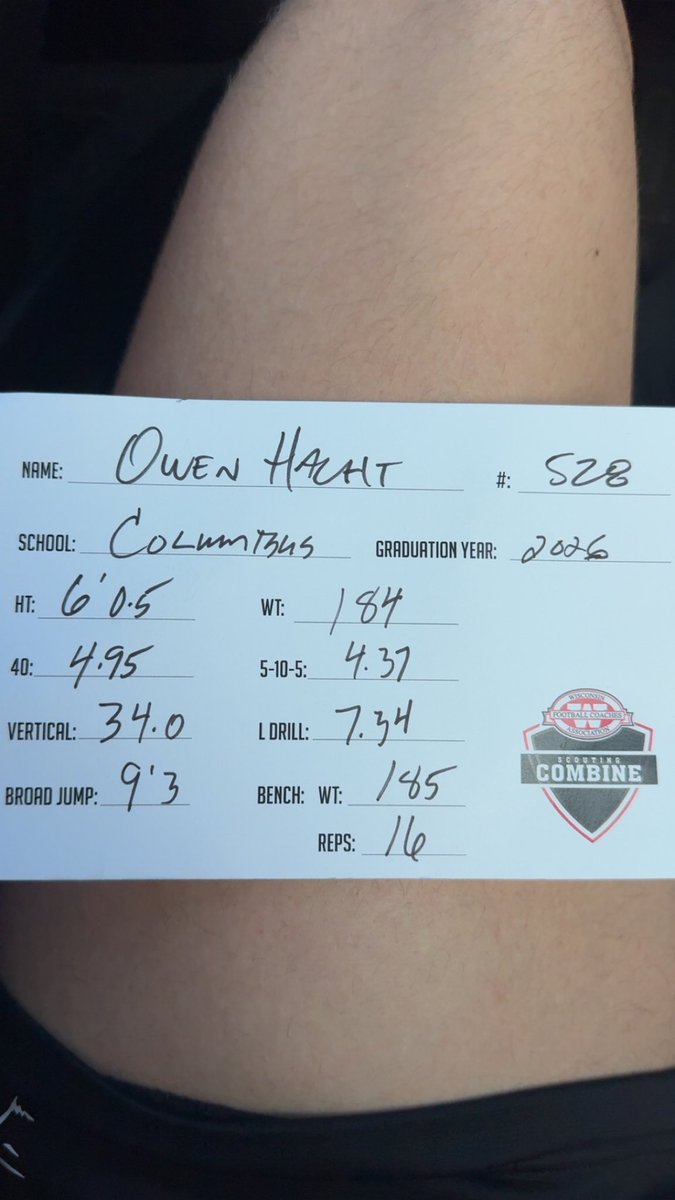 NAME: OWEN HACHT #: 528
SCHOOL: COLUMBUS GRADUATION YEAR: 2026
HT: 6'0.5 WT: 184
40: 4.95 5-10-5: 4.37
VERTICAL: 34.0 L DRILL: 7.34
BROAD JUMP: 9'3 BENCH: WT: 185
REPS: 16
WISCONSIN
FOOTBALL COACHES
ASSOCIATION
SCOUTING
COMBINE